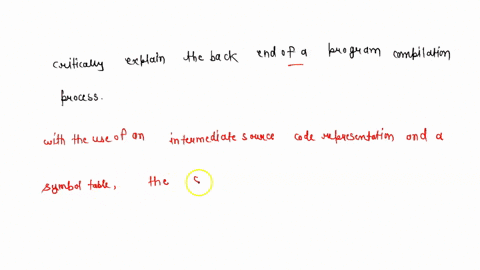 critically explain the back end of a program compilation
process.
with the use of an intermediate source code representation and a
symbol table, the s